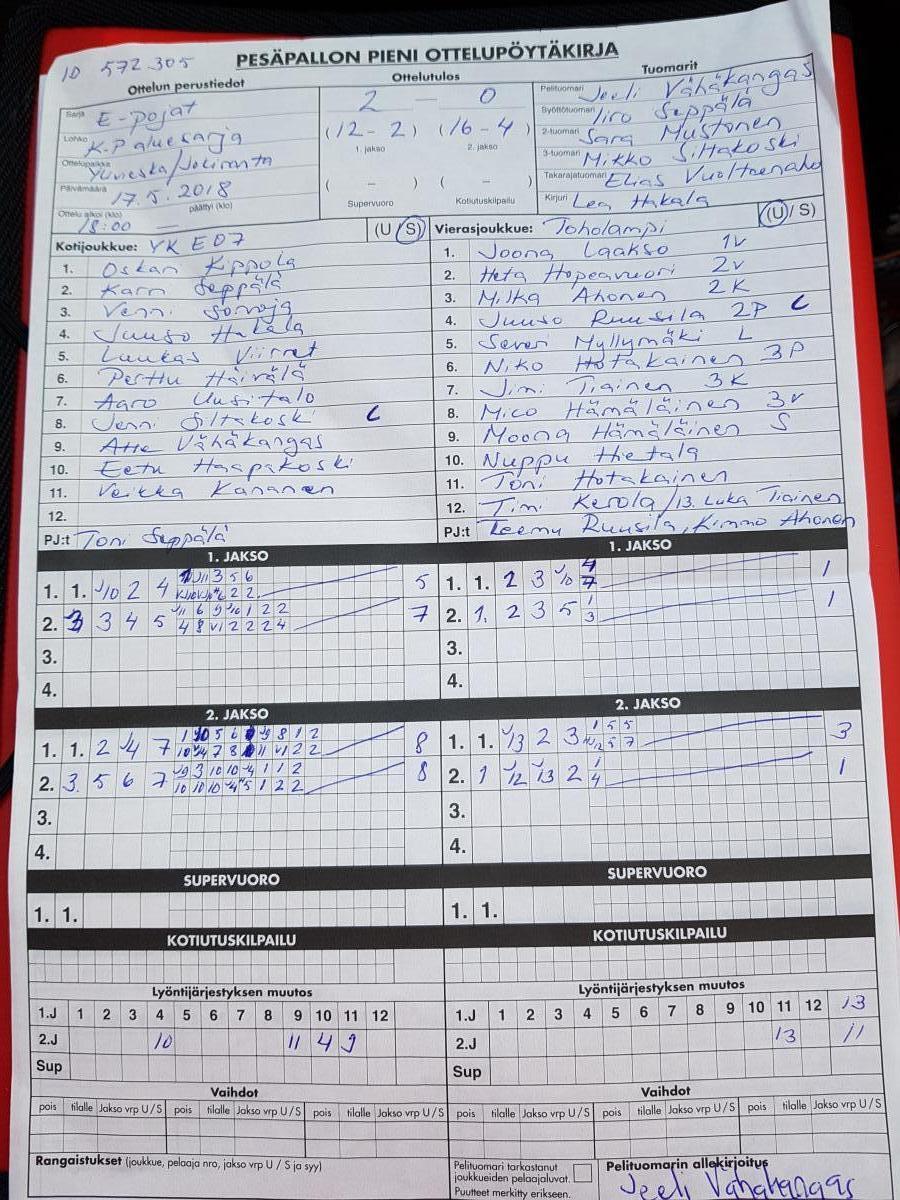 ID 572305
PESÄPALLON PIENI OTTELUPÖYTÄKIRJA
Ottelun perustiedot
Sarja E-pojat
Lohko K-P aluesarja
Ottelupaikka Ylivieska/Jokiranta
Päivämäärä 17.5.2018
Ottelu alkoi (klo) 18:00 päättyi (klo) —
Ottelutulos
2 — 0
(12 - 2) (16 - 4)
1. jakso 2. jakso
( – ) ( – )
Supervuoro Kotiutuskilpailu
Tuomarit
Pelituomari Jeeli Vähäkangas
Syöttötuomari Iiro Seppälä
2-tuomari Sara Mustonen
3-tuomari Mikko Siltakoski
Takarajatuomari Elias Vuoltoenaho
Kirjuri Lea Hakala
Kotijoukkue: YK E07 (U/S)
1. Oskari Kippola
2. Karri Seppälä
3. Venni Sorvoja
4. Juuso Hakala
5. Luukas Viirret
6. Perttu Häivälä
7. Aaro Uusitalo
8. Jenni Siltakoski C
9. Atte Vähäkangas
10. Eetu Haapakoski
11. Veikka Kananen
12.
PJ:t Toni Seppälä
Vierasjoukkue: Toholampi (U/S)
1. Joona Laakso 1V
2. Heta Hopeavuori 2V
3. Milka Ahonen 2K
4. Juuso Ruusila 2P C
5. Severi Myllymäki L
6. Niko Hotakainen 3P
7. Jimi Tiainen 3K
8. Mico Hämäläinen 3V
9. Moona Hämäläinen S
10. Nuppu Hietala
11. Toni Hotakainen
12. Timi Kerola /13. Luka Tiainen
PJ:t Teemu Ruusila, Kimmo Ahonen
1. JAKSO
1. 1. 10 2 4 5
2. 3 4 5 7
3.
4.
1. JAKSO
1. 1. 2 3 1
2. 1. 2 3 5 1
3.
4.
2. JAKSO
1. 1. 2 4 7 8
2. 3. 5 6 7 8
3.
4.
2. JAKSO
1. 1. 13 2 3 3
2. 1 12 13 2 1
3.
4.
SUPERVUORO
1. 1.
SUPERVUORO
1. 1.
KOTIUTUSKILPAILU
KOTIUTUSKILPAILU
Lyöntijärjestyksen muutos
1.J 1 2 3 4 5 6 7 8 9 10 11 12
2.J 10 11 4 9
Sup
Lyöntijärjestyksen muutos
1.J 1 2 3 4 5 6 7 8 9 10 11 12 13
2.J 13 11
Sup
Vaihdot
pois tilalle Jakso vrp U/S pois tilalle Jakso vrp U/S pois tilalle Jakso vrp U/S
Vaihdot
pois tilalle Jakso vrp U/S pois tilalle Jakso vrp U/S pois tilalle Jakso vrp U/S
Rangaistukset (joukkue, pelaaja nro, jakso vrp U / S ja syy)
Pelituomari tarkastanut
joukkueiden pelaajaluvat.
Puutteet merkitty erikseen.
Pelituomarin allekirjoitus
Jeeli Vähäkangas